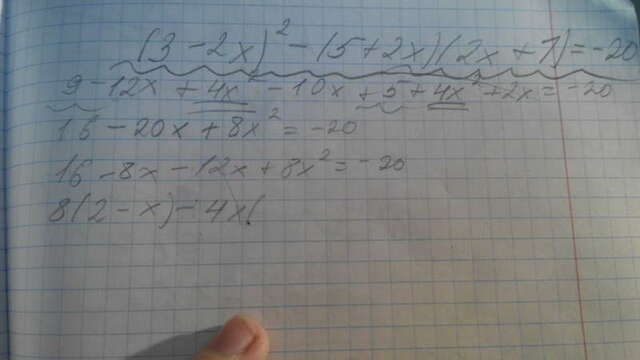 (3 - 2x)² - (5 + 2x)(2x + 1) = -20
9 - 12x + 4x² - 10x + 5 + 4x² + 2x = -20
16 - 20x + 8x² = -20
16 - 8x - 12x + 8x² = -20
8(2 - x) - 4x(